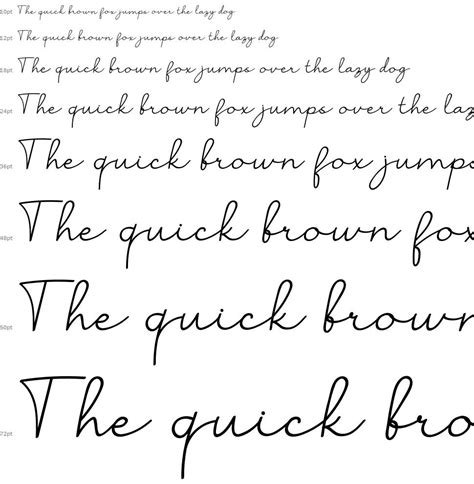 10pt The quick brown fox jumps over the lazy dog
12pt The quick brown fox jumps over the lazy dog
18pt The quick brown fox jumps over the lazy dog
24pt The quick brown fox jumps over the laz
36pt The quick brown fox jumps
48pt The quick brown fox
60pt The quick brown
72pt The quick bro